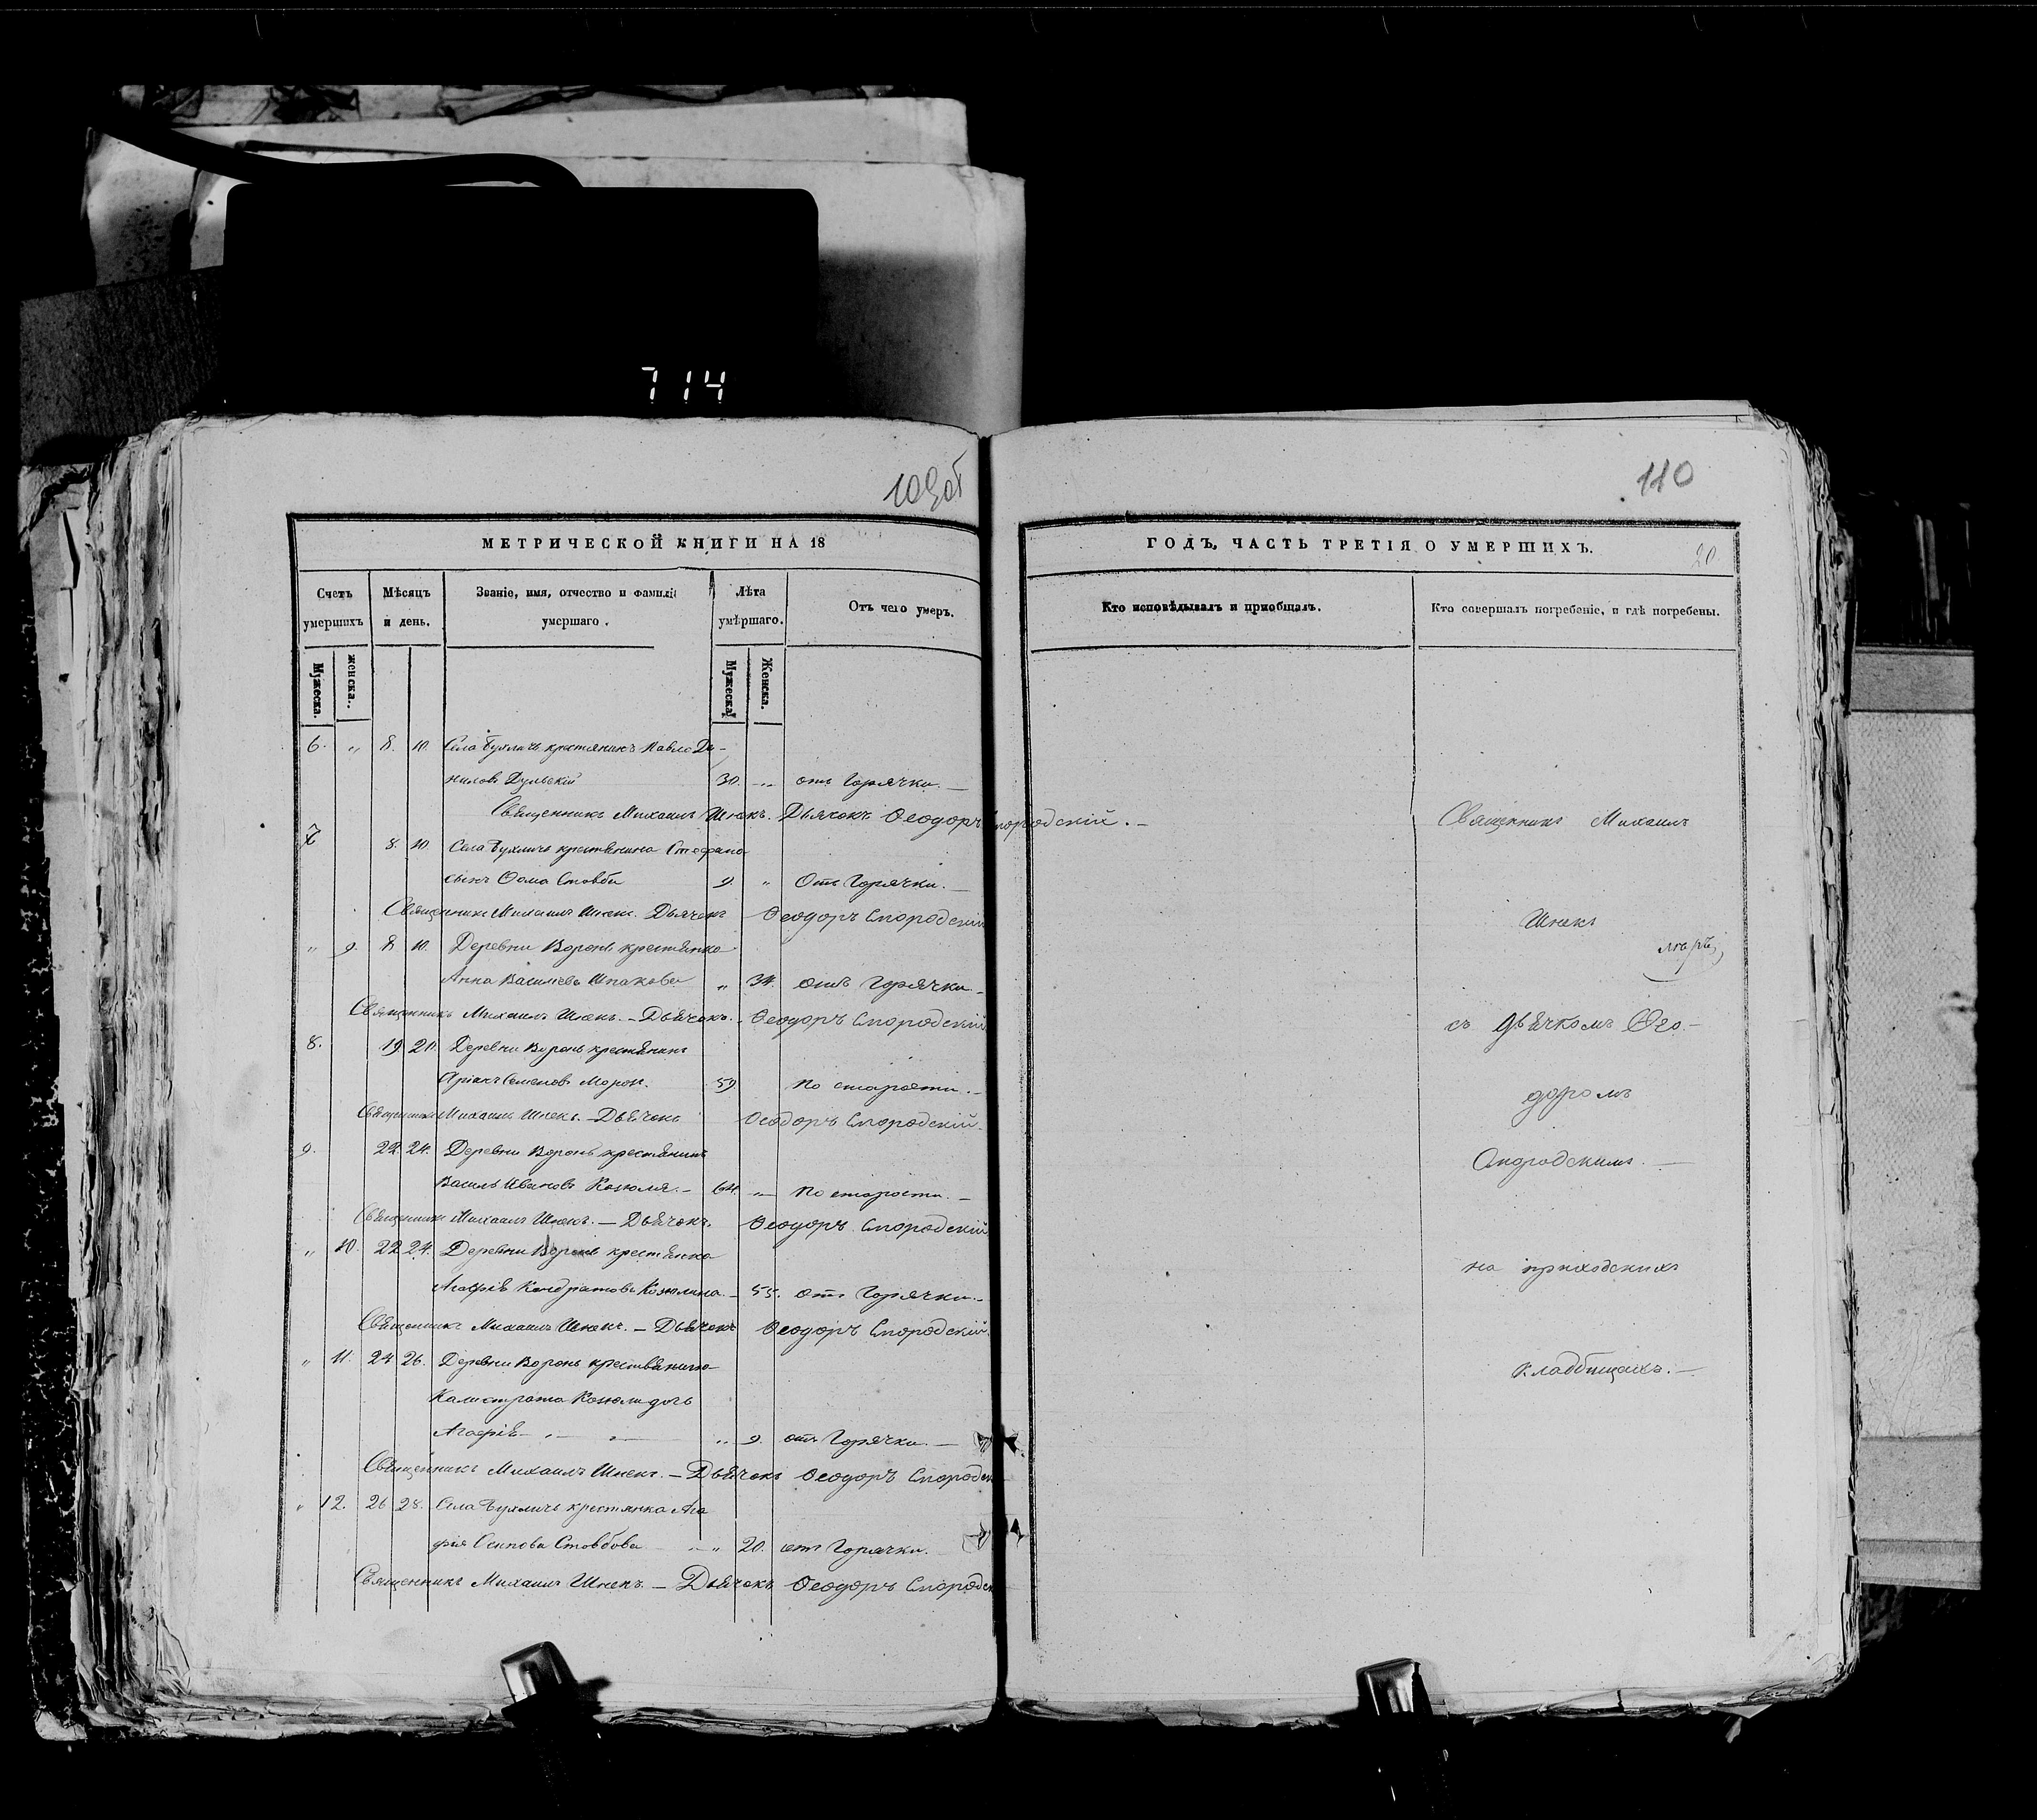 714
109об
110
МЕТРИЧЕСКОЙ КНИГИ НА 18
ГОДЪ, ЧАСТЬ ТРЕТІЯ О УМЕРШИХЪ.
20
Счетъ умершихъ
Мужеска.
женска.
Мѣсяцъ и день.
Званіе, имя, отчество и фамилі
умершаго.
Лѣта умѣршаго.
Мужеска
Женска.
Отъ чего умеръ.
Кто исповѣдывалъ и приобщалъ.
Кто совершалъ погребеніе, и гдѣ погребены.
6. „ 8. 10. Села крестянинъ Павло Да-
ниловъ Дульскій 30. „ отъ Горячки.
Священникъ Михаилъ Шнекъ. Дьячокъ Ѳеодоръ Спородскій.
7 8. 10. Села Бухличъ крестянина Стефана
сынъ Ѳома Стовба 9. „ Отъ Горячки.
Священникъ Михаилъ Шнекъ. Дьячокъ Ѳеодоръ Спородскій
„ 9. 8 10. Деревни Воронь крестянка
Анна Василіева Шпакова „ 34. отъ Горячки.
Священникъ Михаилъ Шнекъ. - Дьячокъ. Ѳеодоръ Спородскій
8. 19 21. Деревни Воронь крестянинъ
Семеновъ Мороз. 59 По старости.
Священникъ Михаилъ Шнекъ. - Дьячокъ Ѳеодоръ Спородскій.
9. 22 24. Деревни Воронь крестянинъ
Василь Ивановъ Козюля. 64. „ По старости.
Священникъ Михаилъ Шнекъ. - Дьячокъ. Ѳеодоръ Спородскій
„ 10. 22 24. Деревни Воронь крестянка
Агафія Кондратова Козюлина. 55. отъ Горячки.
Священникъ Михаилъ Шнекъ. - Дьячокъ Ѳеодоръ Спородскій.
„ 11. 24 26. Деревни Воронь крестянина
Калистрата Козюли дочь
Агафія „ 9. отъ Горячки.
Священникъ Михаилъ Шнекъ. - Дьячокъ Ѳеодоръ Спородск
„ 12. 26 28. Села Бухличъ крестянка Ага
фія Осипова Стовбова „ 20. отъ Горячки.
Священникъ Михаилъ Шнекъ. - Дьячокъ Ѳеодоръ Спородск
Священникъ Михаилъ
Шнекъ
съ Дьячкомъ Ѳео-
доромъ
Спородскимъ.
на приходскихъ
кладбищахъ.